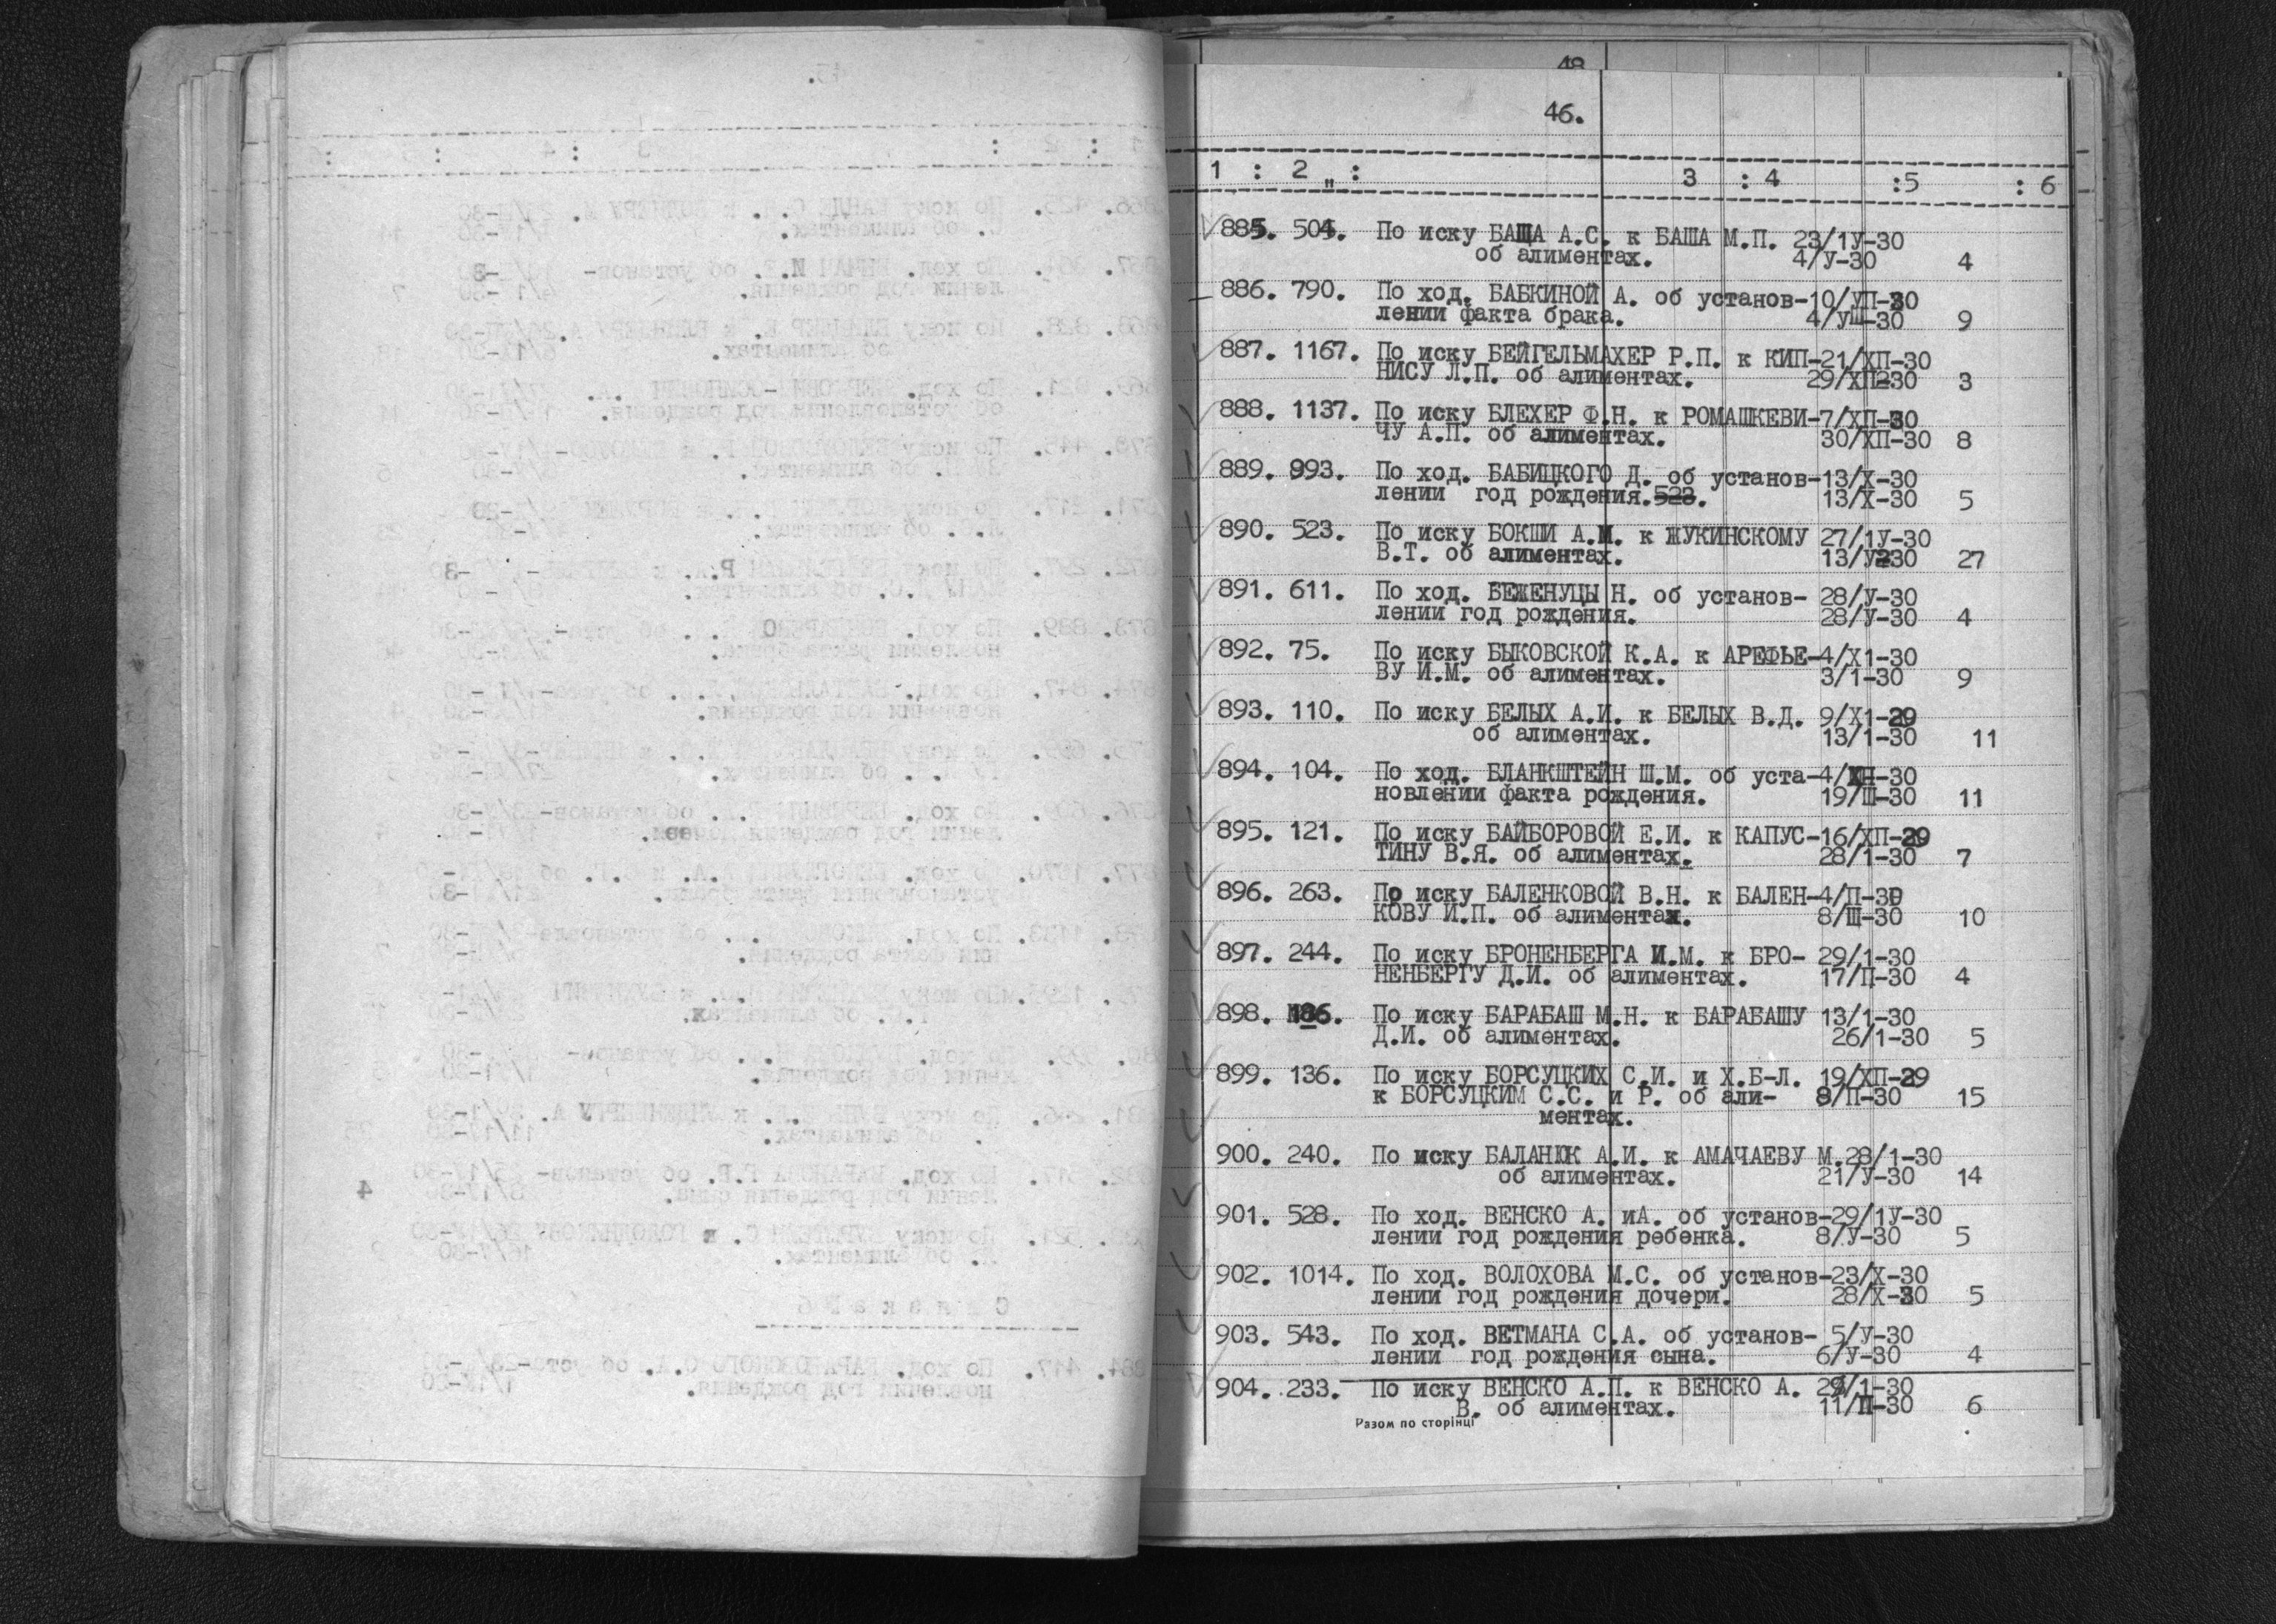 48
46.
1 : 2 „ : 3 : 4 :5 : 6
885. 504. По иску БАЩА А.С. к БАША М.П. 23/1У-30
об алиментах. 4/У-30 4
886. 790. По ход. БАБКИНОЙ А. об установ-10/УП-30
лении факта брака. 4/УШ-30 9
887. 1167. По иску БЕЙГЕЛЬМАХЕР Р.П. к КИП-21/ХП-30
НИСУ Л.П. об алиментах. 29/ХП-30 3
888. 1137. По иску БЛЕХЕР Ф.Н. к РОМАШКЕВИ-7/ХП-30
ЧУ А.П. об алиментах. 30/ХП-30 8
889. 993. По ход. БАБИЦКОГО Д. об установ-13/Х-30
лении год рождения.523. 13/Х-30 5
890. 523. По иску БОКШИ А.М. к ЖУКИНСКОМУ 27/1У-30
В.Т. об алиментах. 13/У-30 27
891. 611. По ход. БЕЖЕНУЦЫ Н. об установ- 28/У-30
лении год рождения. 28/У-30 4
892. 75. По иску БЫКОВСКОЙ К.А. к АРЕФЬЕ-4/Х1-30
ВУ И.М. об алиментах. 3/1-30 9
893. 110. По иску БЕЛЫХ А.И. к БЕЛЫХ В.Д. 9/Х1-29
об алиментах. 13/1-30 11
894. 104. По ход. БЛАНКШТЕЙН Ш.М. об уста-4/
новлении факта рождения. 19/Ш-30 11
895. 121. По иску БАЙБОРОВОЙ Е.И. к КАПУС-16/ХП-29
ТИНУ В.Я. об алиментах. 28/1-30 7
896. 263. По иску БАЛЕНКОВОЙ В.Н. к БАЛЕН-4/П-30
КОВУ И.П. об алиментах. 8/Ш-30 10
897. 244. По иску БРОНЕНБЕРГА И.М. к БРО- 29/1-30
НЕНБЕРГУ Д.И. об алиментах. 17/П-30 4
898. По иску БАРАБАШ М.Н. к БАРАБАШУ 13/1-30
Д.И. об алиментах. 26/1-30 5
899. 136. По иску БОРСУЦКИХ С.И. и Х.Б-Л. 19/ХП-29
к БОРСУЦКИМ С.С. и Р. об али- 8/П-30 15
ментах.
900. 240. По иску БАЛАНЮК А.И. к АМАЧАЕВУ М.28/1-30
об алиментах. 21/У-30 14
901. 528. По ход. ВЕНСКО А. иА. об установ-29/1У-30
лении год рождения ребенка. 8/У-30 5
902. 1014. По ход. ВОЛОХОВА М.С. об установ-23/Х-30
лении год рождения дочери. 28/Х-30 5
903. 543. По ход. ВЕТМАНА С.А. об установ- 5/У-30
лении год рождения сына. 6/У-30 4
904. 233. По иску ВЕНСКО А.П. к ВЕНСКО А. 29/1-30
В. об алиментах. 11/П-30 6
Разом по сторінці